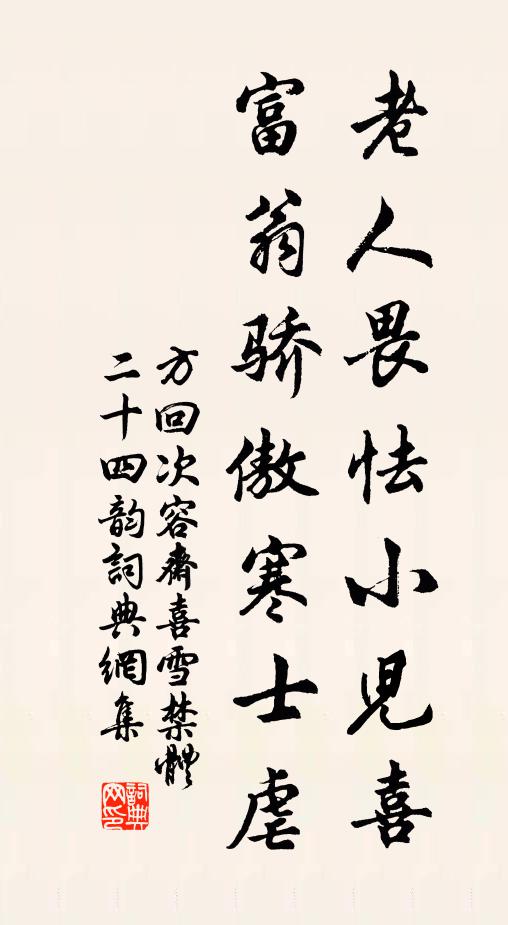 老人畏怯小兒喜
富翁骄傲寒士虐
方回次容齋喜雪禁體
二十四韵詞典網集
詞典
网印